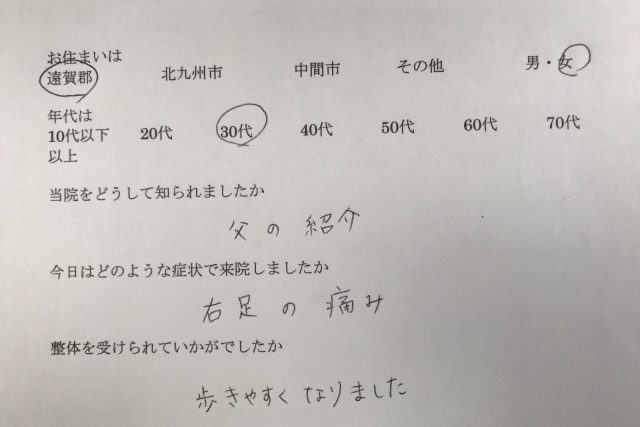 お住まいは
遠賀郡 北九州市 中間市 その他 男・女
年代は
10代以下 20代 30代 40代 50代 60代 70代
以上
当院をどうして知られましたか
父の紹介
今日はどのような症状で来院しましたか
右足の痛み
整体を受けられていかがでしたか
歩きやすくなりました